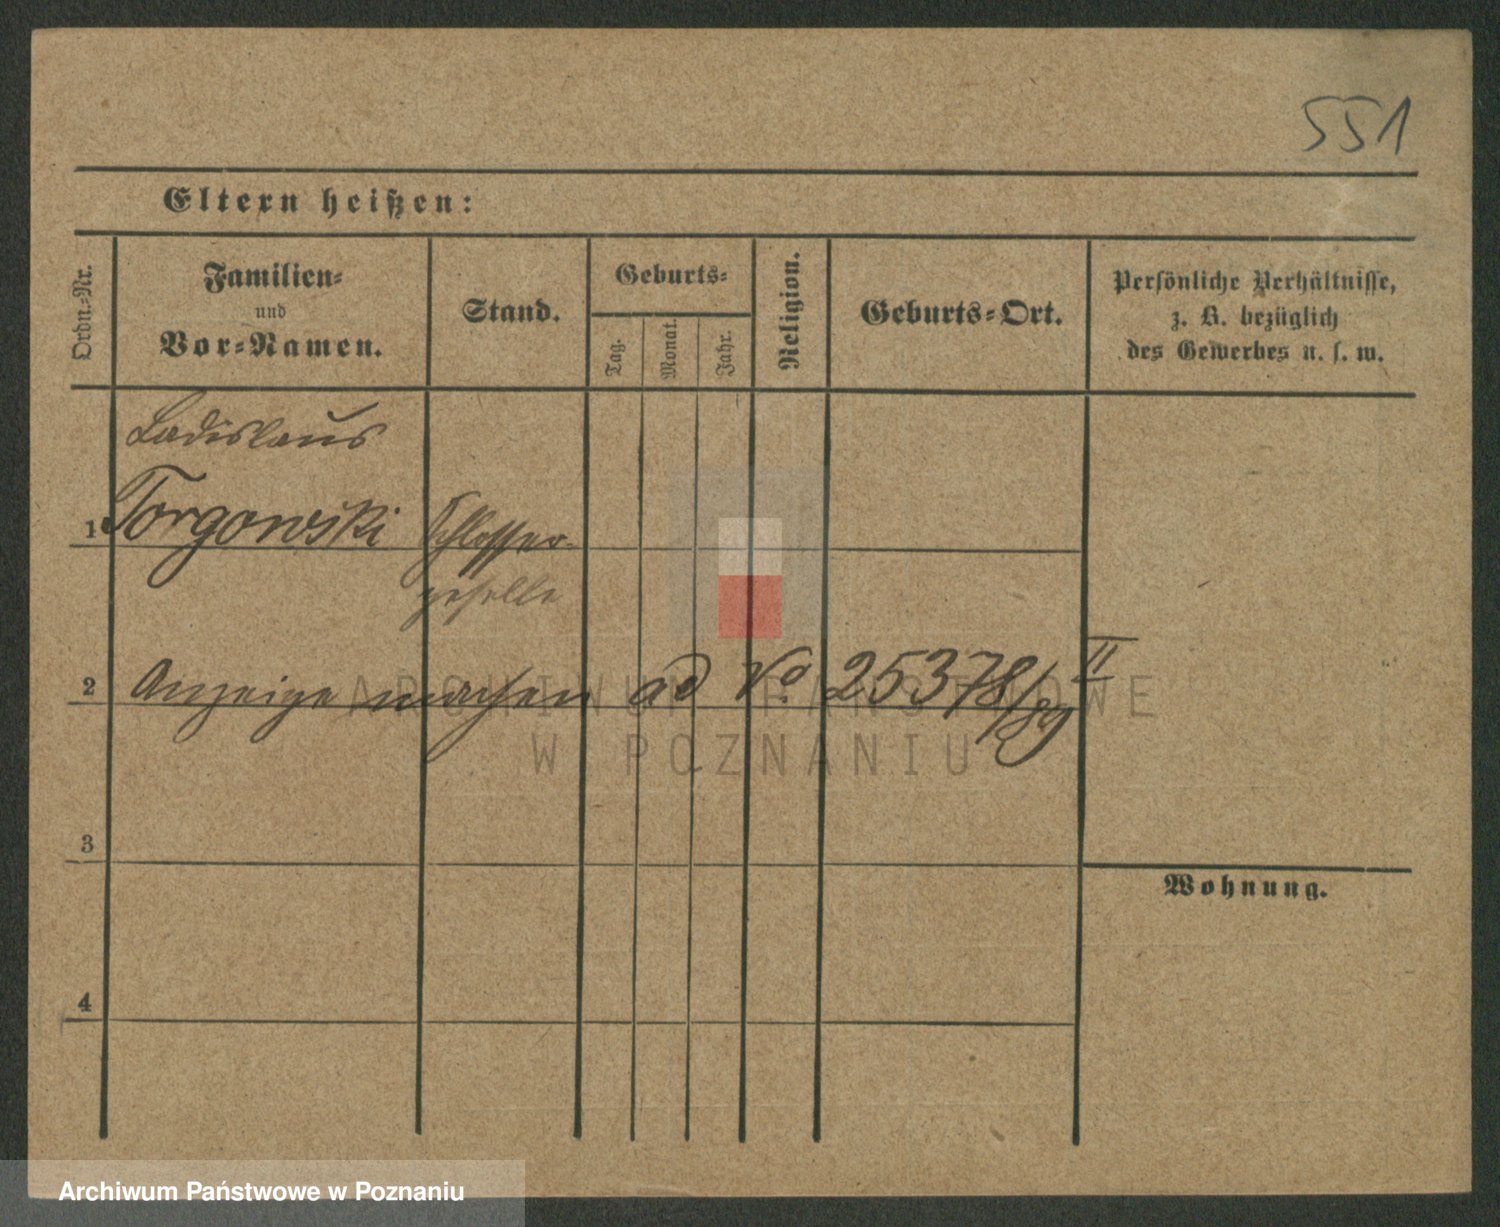 551
Eltern heißen:
Ordn.-Nr.
Familien-
und
Vor-Namen.
Stand.
Geburts-
Tag.
Monat.
Jahr.
Religion.
Geburts-Ort.
Persönliche Verhältnisse,
z. B. bezüglich
des Gewerbes u. s. w.
Ladislaus
1 Torgowski Schlosser-
geselle
2 Anzeige machen ad No 25378/89 II
ARCHIWUM PAŃSTWOWE
W POZNANIU
3
Wohnung.
4
Archiwum Państwowe w Poznaniu